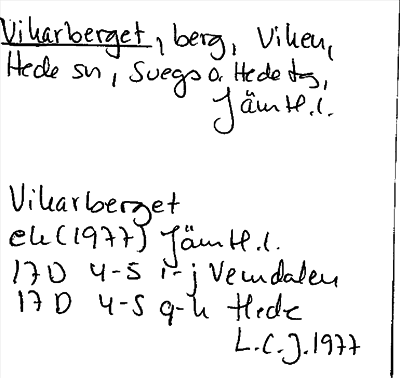 Vikarberget, berg, Viken,
Hede sn, Svegs o. Hede tg,
Jämtl. l.
Vikarberget
ek (1977) Jämtl. l.
17D 4-5 i-j Vemdalen
17D 4-5 g-h Hede
L.C.J. 1977